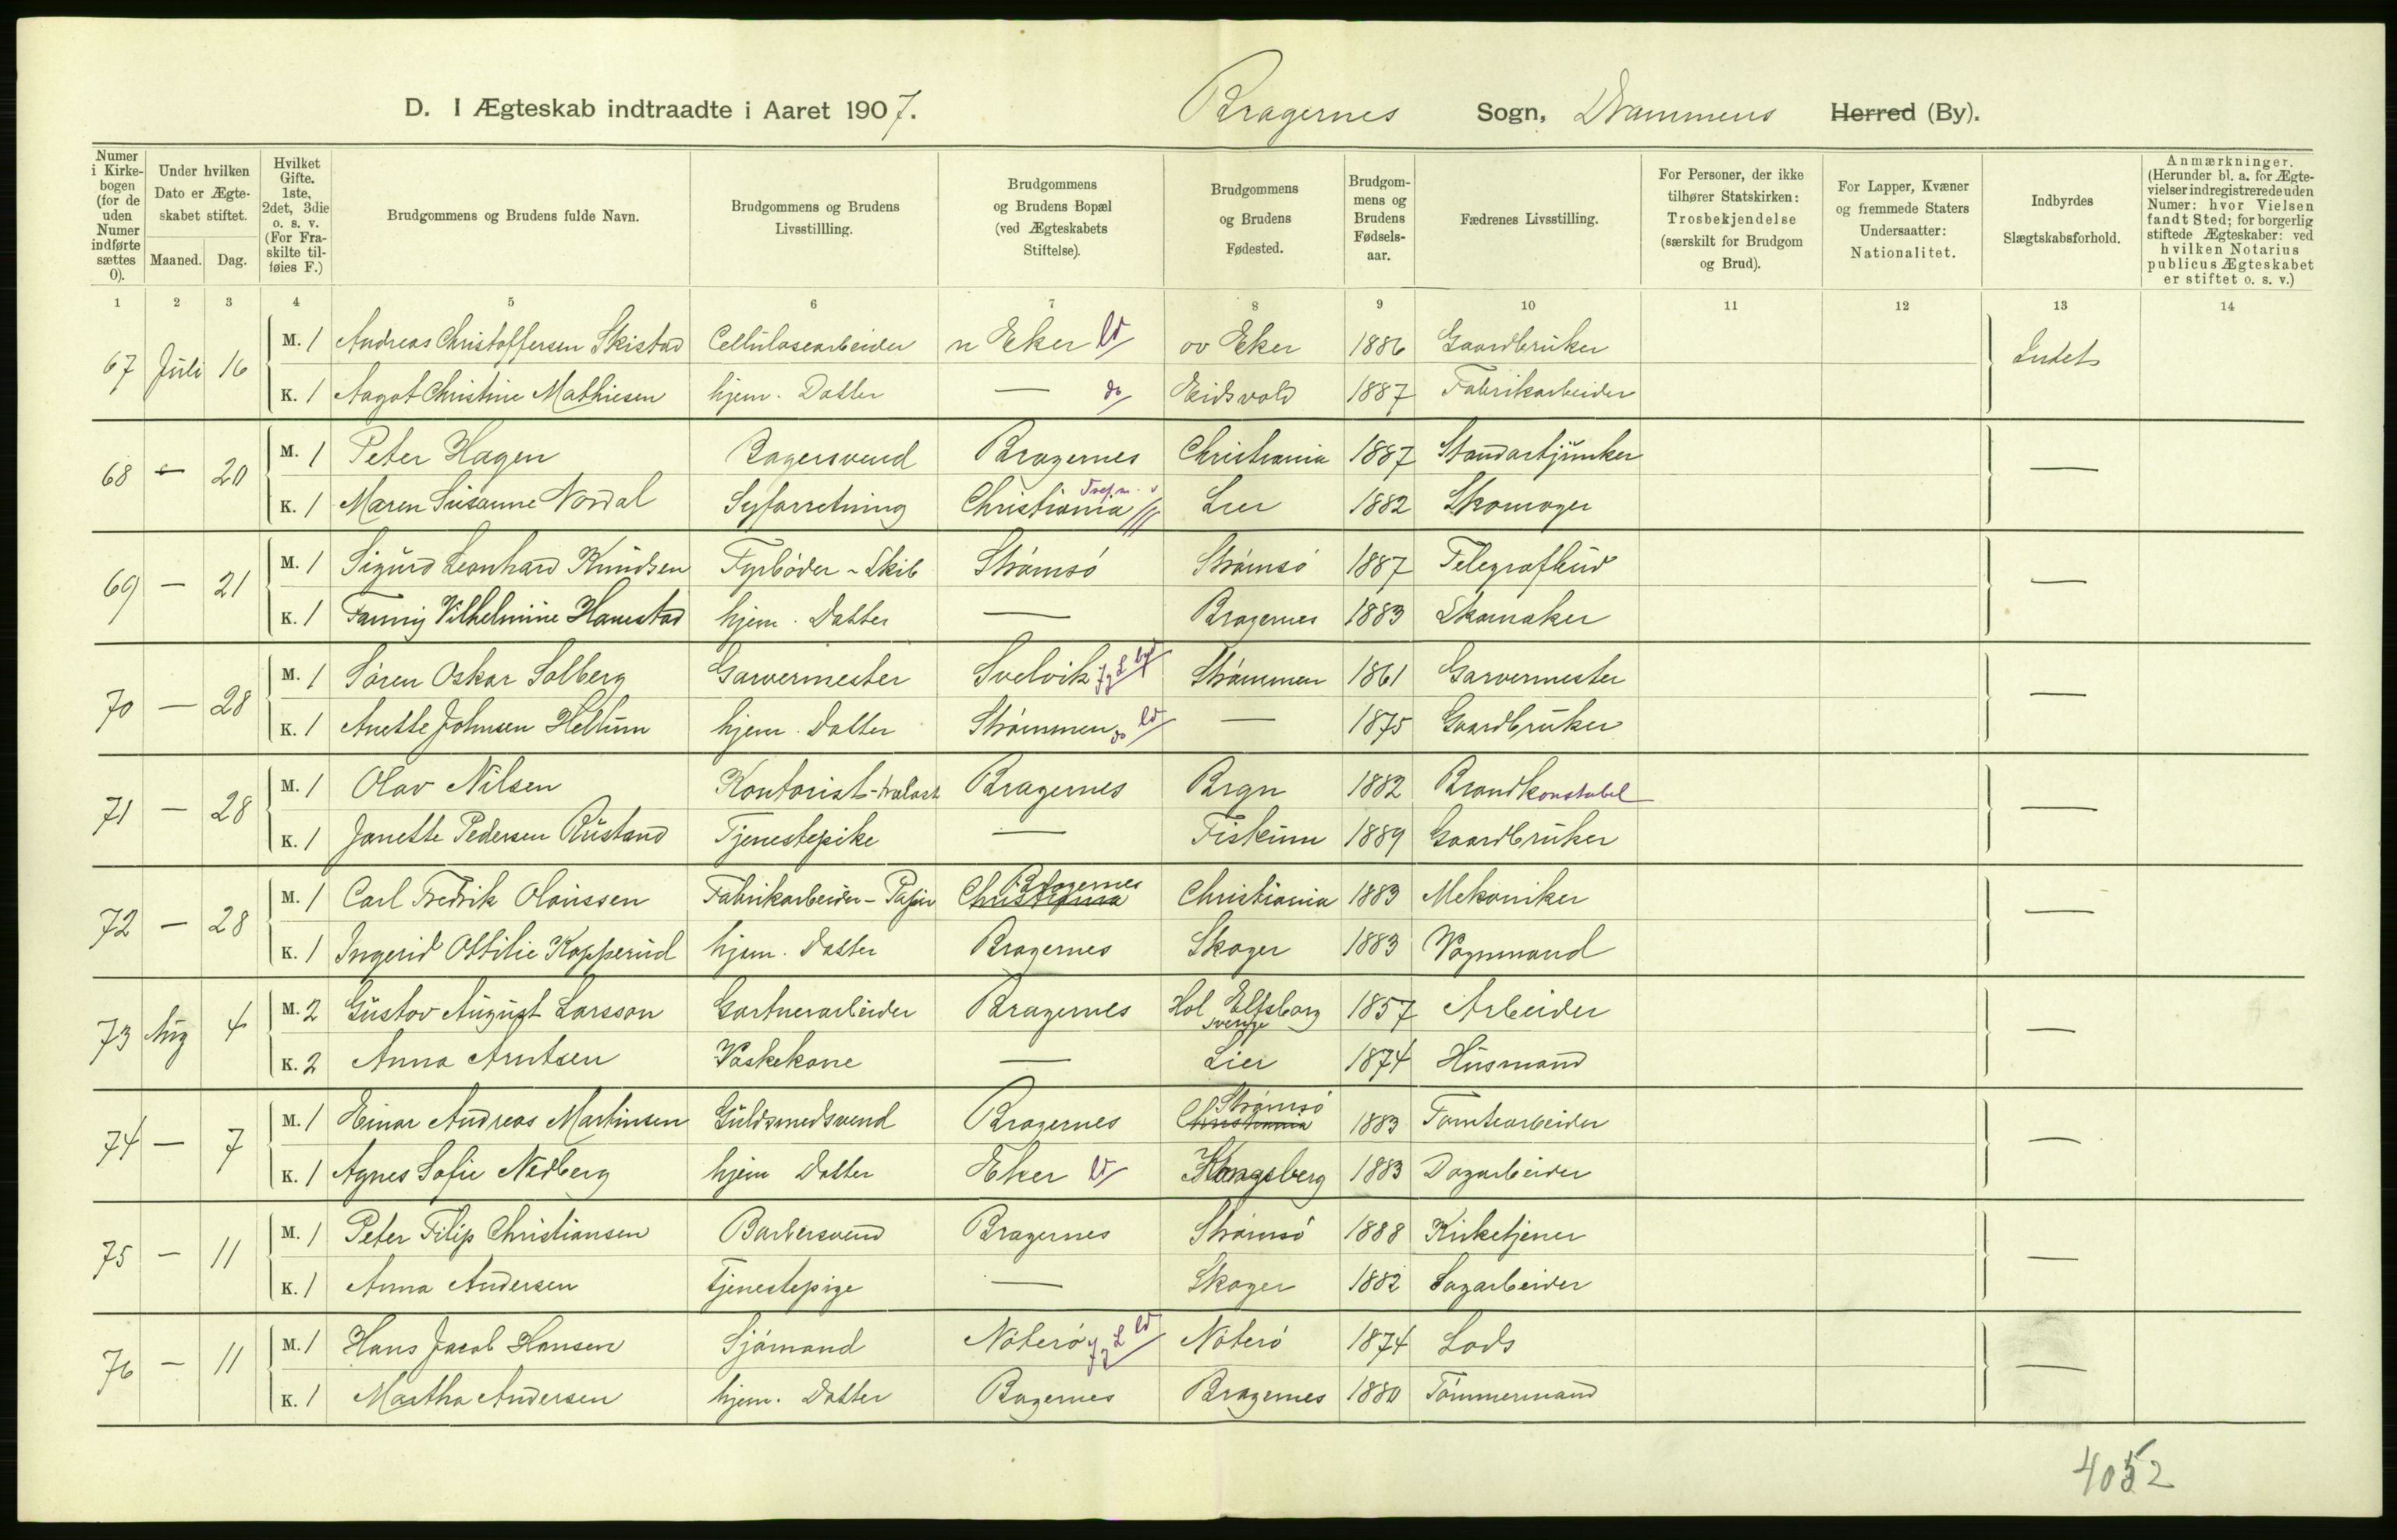 D. I Ægteskab indtraadte i Aaret 1907. Bragernes Sogn, Drammens Herred (By).
Numer i Kirke-bogen (for de uden Numer indførte sættes 0). | Under hvilken Dato er Ægte-skabet stiftet. Maaned. Dag. | Hvilket Gifte. 1ste, 2det, 3die o. s. v. (For Fra-skilte til-føies F.) | Brudgommens og Brudens fulde Navn. | Brudgommens og Brudens Livsstillling. | Brudgommens og Brudens Bopæl (ved Ægteskabets Stiftelse). | Brudgommens og Brudens Fødested. | Brudgom-mens og Brudens Fødsels-aar. | Fædrenes Livsstilling. | For Personer, der ikke tilhører Statskirken: Trosbekjendelse (særskilt for Brudgom og Brud). | For Lapper, Kvæner og fremmede Staters Undersaatter: Nationalitet. | Indbyrdes Slægtskabsforhold. | Anmærkninger. (Herunder bl. a. for Ægte-vielser indregistrerede uden Numer: hvor Vielsen fandt Sted; for borgerlig stiftede Ægteskaber: ved hvilken Notarius publicus Ægteskabet er stiftet o. s. v.)
1 2 3 4 5 6 7 8 9 10 11 12 13 14
67 Juli 16 M. 1 Andreas Christoffersen Skistad Cellulosearbeider n Eker ld ov Eker 1886 Gaardbruker Intet
K. 1 Aagot Christine Mathiesen hjem. Datter — do Eidsvold 1887 Fabrikarbeider
68 — 20 M. 1 Peter Hagen Bagersvend Bragernes Christiania 1887 Standartjunker —
K. 1 Maren Susanne Nordal Syforretning Christiania Lier 1882 Skomager
69 — 21 M. 1 Sigurd Leonhard Knudsen Fyrbøder - Skib Strømsø Strømsø 1887 Telegrafbud —
K. 1 Fanny Vilhelmine Hanestad hjem. Datter — Bragernes 1883 Skomaker
70 — 28 M. 1 Søren Oskar Solberg Garvermester Svelvik Strømmen 1861 Garvermester —
K. 1 Anette Johnsen Hellum hjem. Datter Strømmen do ld — 1875 Gaardbruker
71 — 28 M. 1 Olav Nilsen Kontorist-trælast Bragernes Brgn 1882 Brandkonstabel —
K. 1 Janette Pedersen Rustand Tjenestepike — Fiskum 1889 Gaardbruker
72 — 28 M. 1 Carl Fredrik Olaussen Fabrikarbeider - Papir Christiania Bragernes Christiania 1883 Mekaniker —
K. 1 Ingerid Ottilie Kopperud hjem. Datter Bragernes Skoger 1883 Vognmand
73 Aug 4 M. 2 Gustav August Larsson Gartnerarbeider Bragernes Hol Elfsborg Sverige 1857 Arbeider —
K. 2 Anna Arntsen Vaskekone — Lier 1874 Husmand
74 — 7 M. 1 Einar Andreas Martinsen Guldsmedsvend Bragernes Christiania Strømsø 1883 Tomtearbeider —
K. 1 Agnes Sofie Nedberg hjem Datter Eker ld Kongsberg 1883 Dagarbeider
75 — 11 M. 1 Peter Filip Christiansen Barbersvend Bragernes Strømsø 1888 Kirketjener —
K. 1 Anna Andersen Tjenestepige — Skoger 1882 Sagarbeider
76 — 11 M. 1 Hans Jacob Hansen Sjømand Nøterø Nøterø 1874 Lods —
K. 1 Martha Andersen hjem. Datter Bagernes Bragernes 1880 Tømmermand
4052